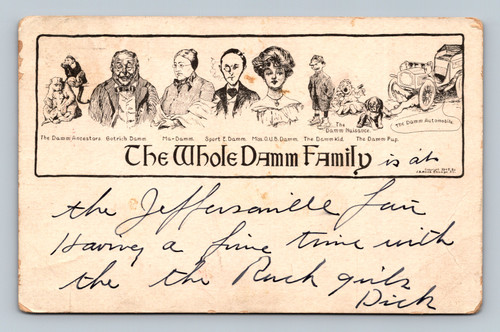 The Damm Ancestors Gotrich Damm Ma-Damm Sport E. Damm Miss U.B. Damm The Damm Kid The Damm Nuisance The Damm Pup. The Damm Automobile
The Whole Damm Family is at
the Jeffersonville Fair
Having a fine time with
the the Ruch girls
Dick